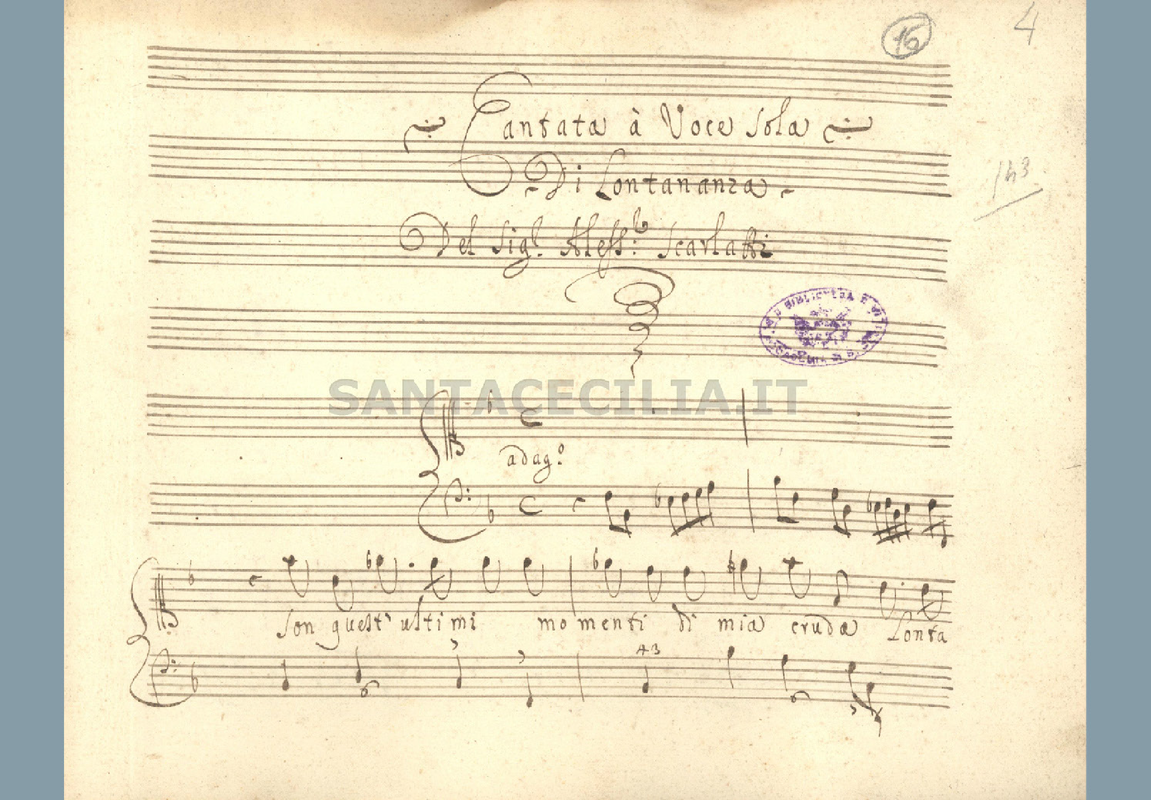 16
4
Cantata à Voce sola
143
Di Lontananza
Del Sig.r Aless.o Scarlatti
BIBLIOTECA E
SANTACECILIA.IT
adag.o
son quest' ultimi momenti di mia cruda Lonta
43
6
6